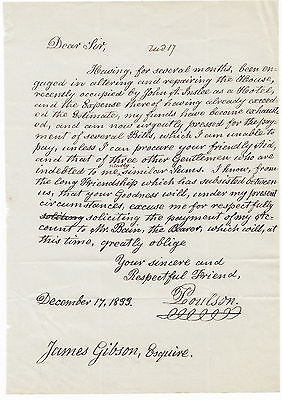 Dear Sir,
Having, for several months, been en-
gaged in altering and repairing the House,
recently occupied by John A. Inslee as a Hotel,
and the Expense thereof having already exceed-
ed the Estimate, my funds have become exhaust-
ed, and am now urgently pressed for the pay-
ment of several Bills, which I am unable to
pay, unless I can procure your friendly Aid,
and that of three other Gentlemen who are
indebted to me, similar Sums. I know, from
the Long Friendship which has subsisted between
us, that your Goodness will, under my present
circumstances, excuse me for respectfully
soliciting the payment of my Ac-
count to Mr. Bain, the Bearer, which will, at
this time, greatly oblige
Your sincere and
Respectful Friend,
Poulson.
December 17, 1833.
James Gibson, Esquire.